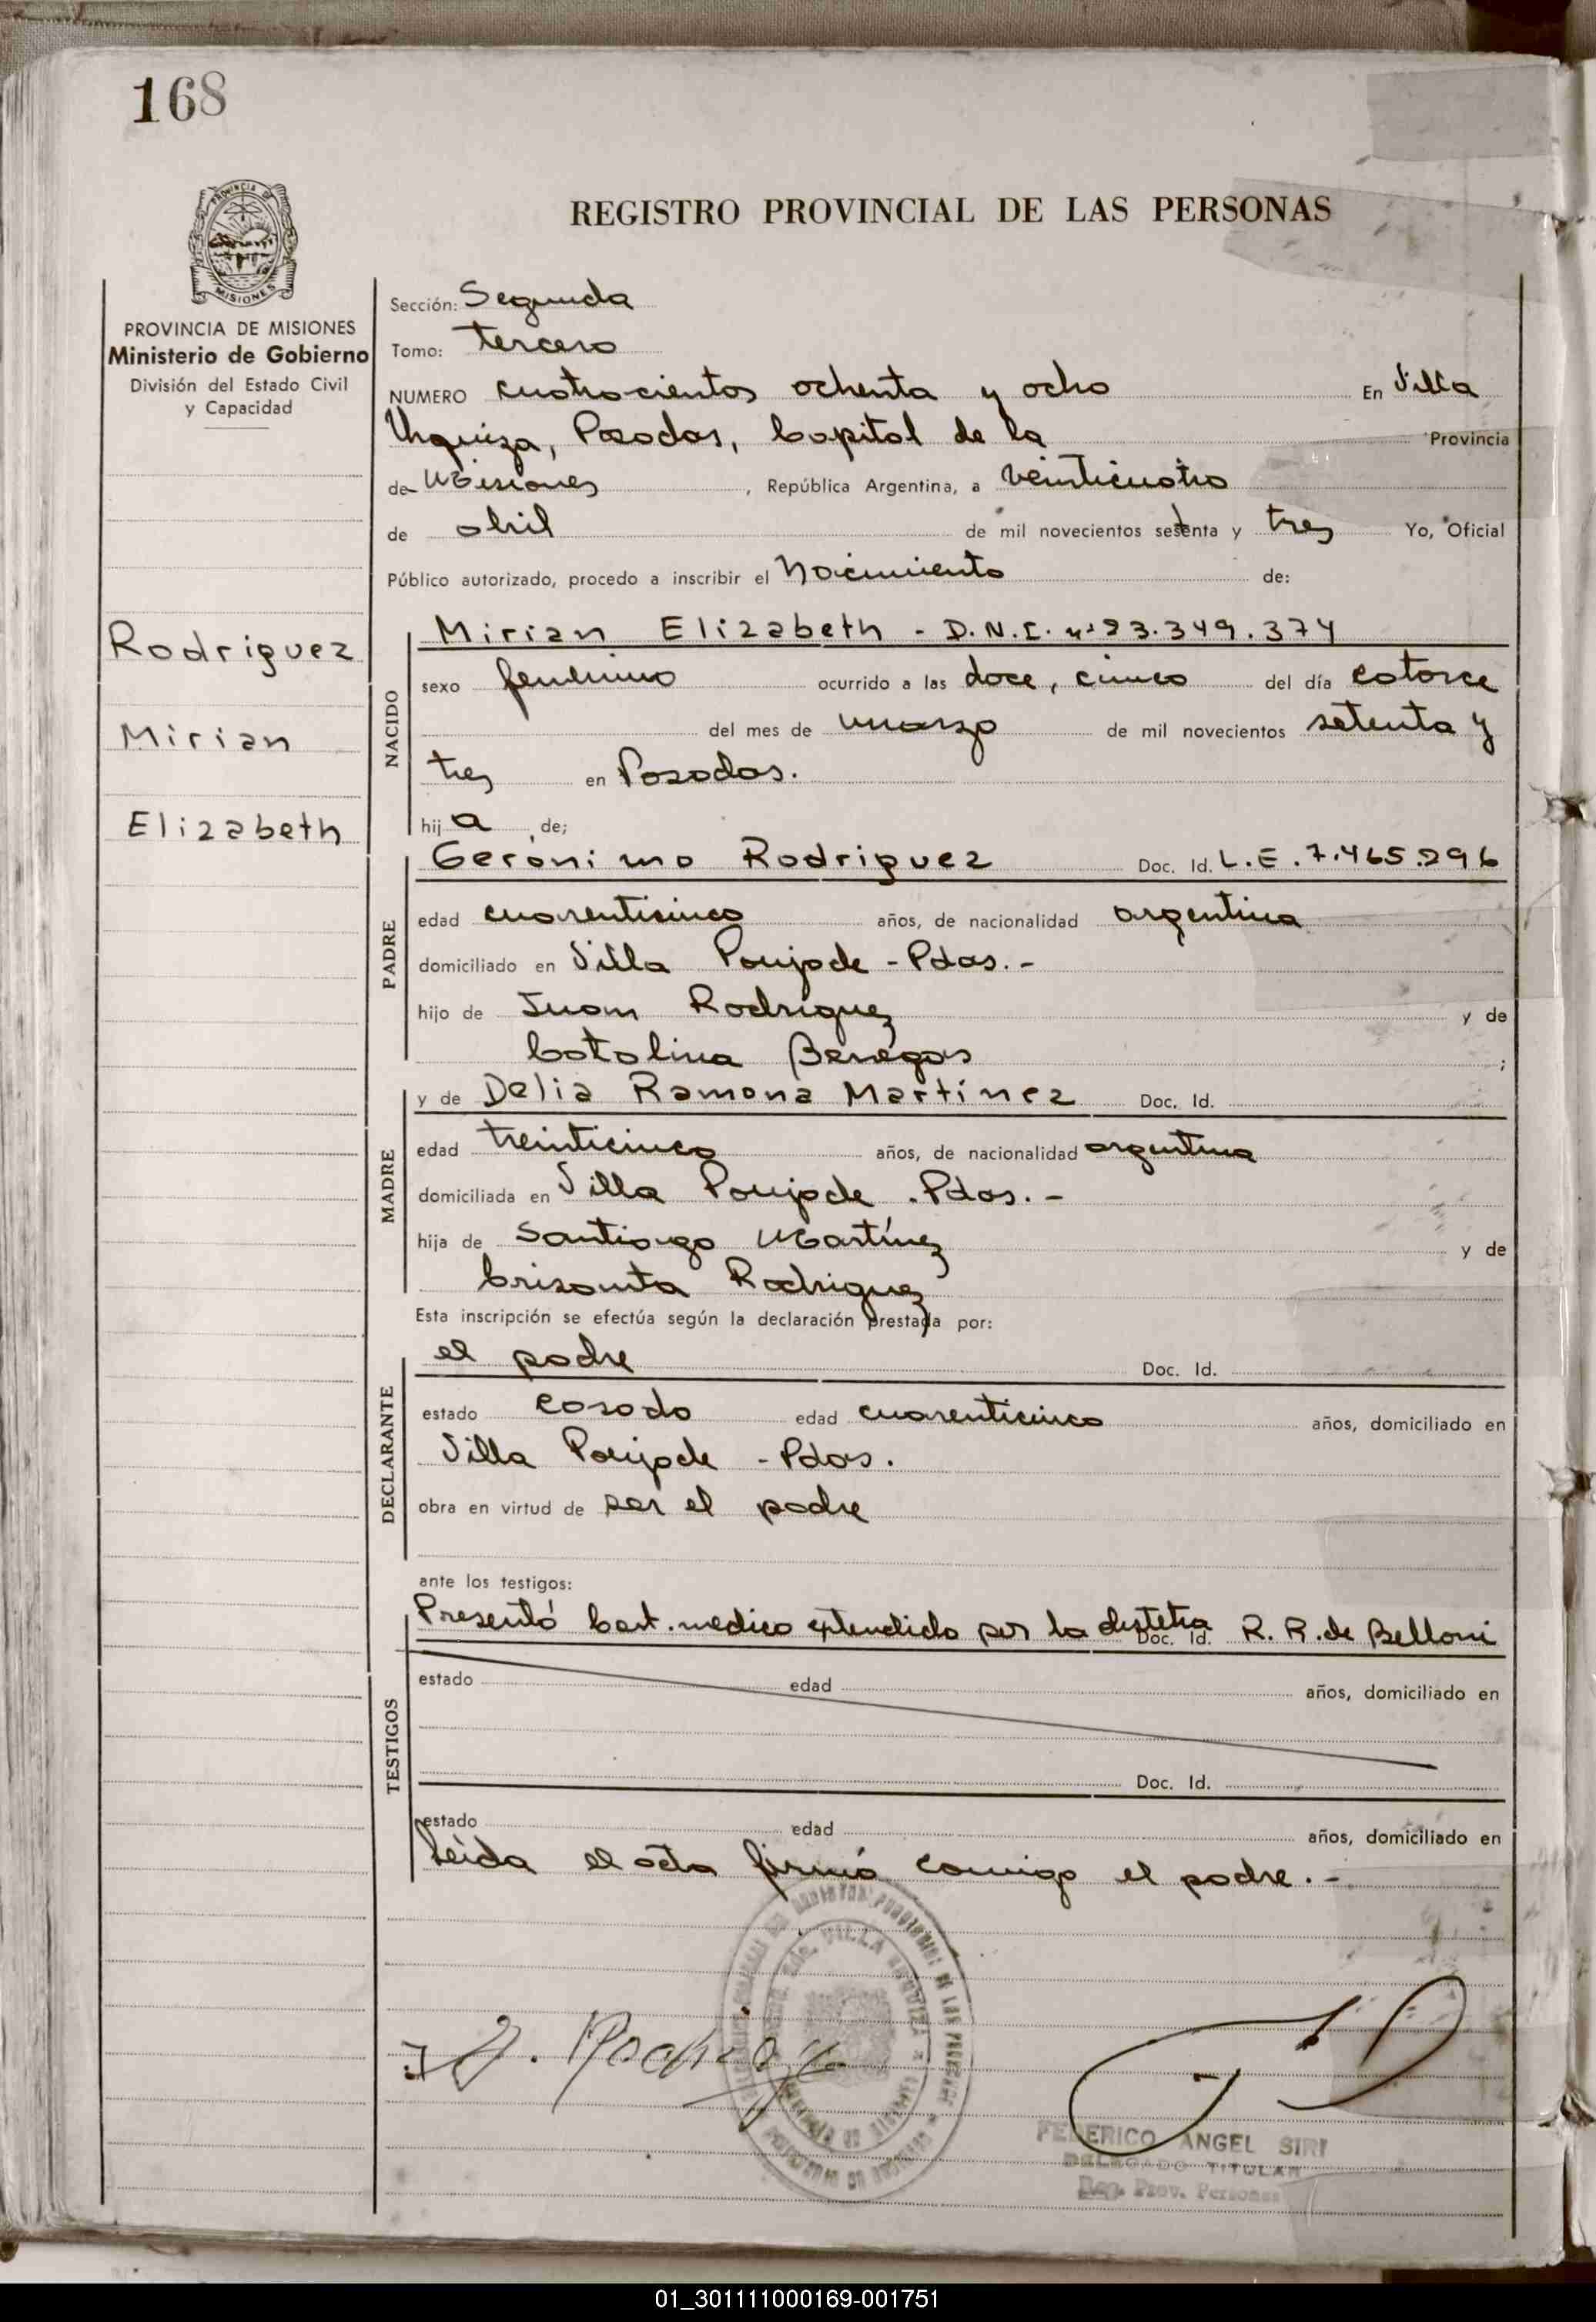 168
PROVINCIA DE MISIONES
REGISTRO PROVINCIAL DE LAS PERSONAS
PROVINCIA DE MISIONES
Ministerio de Gobierno
División del Estado Civil
y Capacidad
Rodriguez
Mirian
Elizabeth
Sección: Segunda
Tomo: tercero
NUMERO cuatrocientos ochenta y ocho En Villa
Urquiza, Posadas, Capital de la Provincia
de Misiones, República Argentina, a veinticuatro
de abril de mil novecientos setenta y tres Yo, Oficial
Público autorizado, procedo a inscribir el Nacimiento de:
NACIDO
Mirian Elizabeth - D.N.I. nº 23.349.374
sexo femenino ocurrido a las doce, cinco del día catorce
del mes de marzo de mil novecientos setenta y
tres en Posadas.
hij a de;
PADRE
Gerónimo Rodriguez Doc. Id. L.E. 7.465.296
edad cuarenticinco años, de nacionalidad argentina
domiciliado en Villa Poujade - Pdas. -
hijo de Juan Rodríguez y de
Catalina Benegas ;
MADRE
y de Delia Ramona Martínez Doc. Id.
edad treinticinco años, de nacionalidad argentina
domiciliada en Villa Poujade . Pdas. -
hija de Santiago Martínez y de
Crisanta Rodriguez
Esta inscripción se efectúa según la declaración prestada por:
DECLARANTE
el padre Doc. Id.
estado casado edad cuarenticinco años, domiciliado en
Villa Poujade - Pdas.
obra en virtud de ser el padre
ante los testigos:
TESTIGOS
Presentó Cert. medico extendido por la Doc. Id. R. R. de Belloni
estado edad años, domiciliado en
Doc. Id.
estado edad años, domiciliado en
Leída el acta firmó conmigo el padre. -
VILLA URQUIZA
FEDERICO ANGEL SIRI
DELEGADO TITULAR
Reg. Prov. Personas
01_301111000169-001751